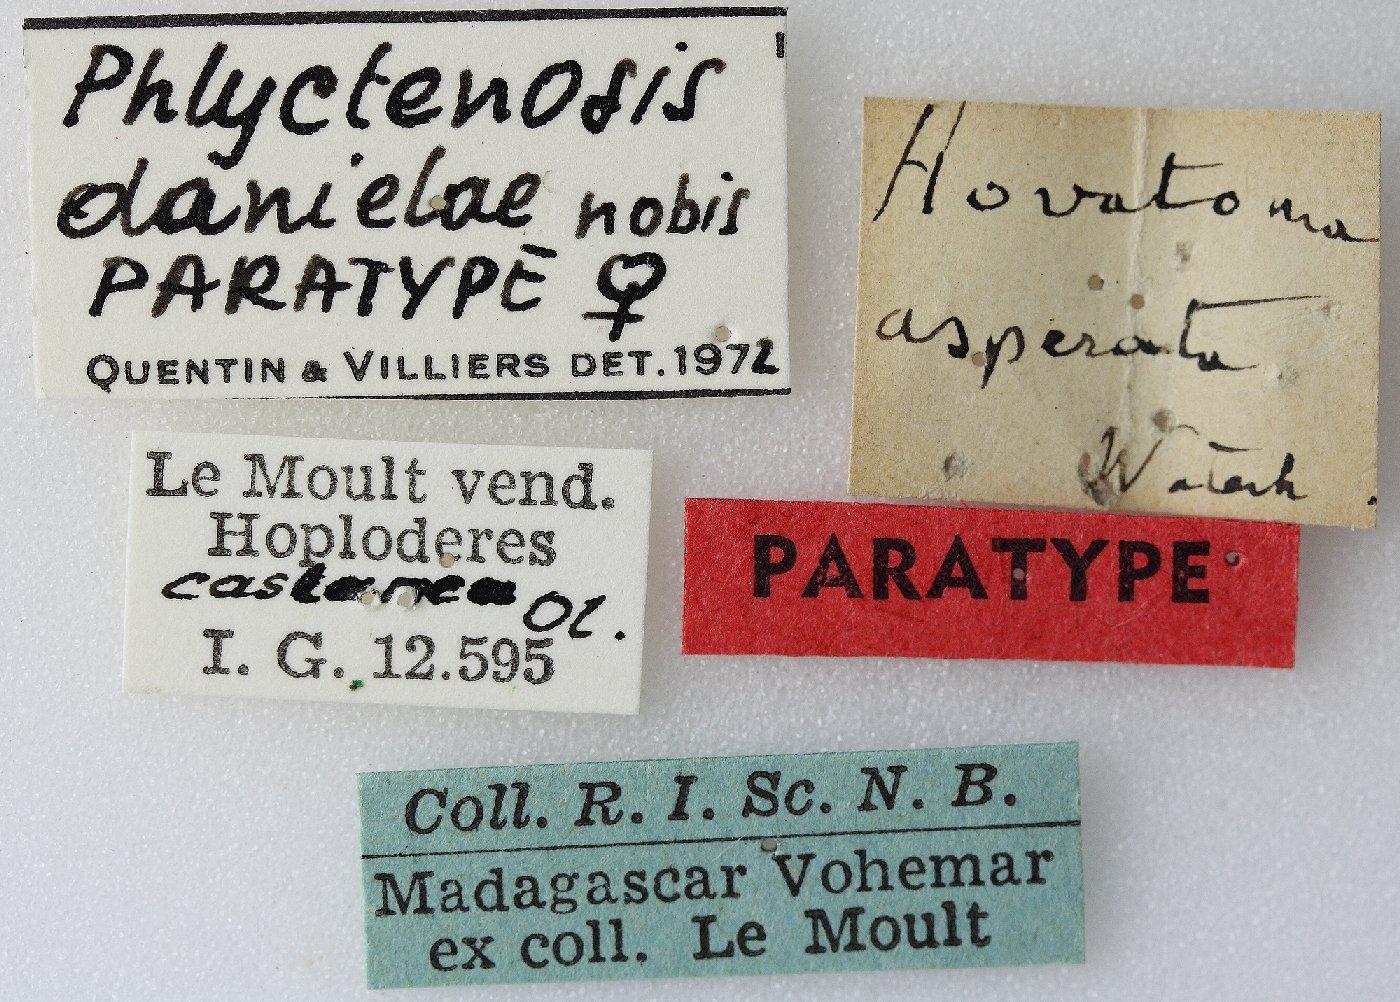 Phlyctenosis
danielae nobis
PARATYPE ♀
QUENTIN & VILLIERS DET. 1972
Hovatoma
asperata
Waterh
Le Moult vend.
Hoploderes
castanea Ol.
I. G. 12.595
PARATYPE
Coll. R. I. Sc. N. B.
Madagascar Vohemar
ex coll. Le Moult